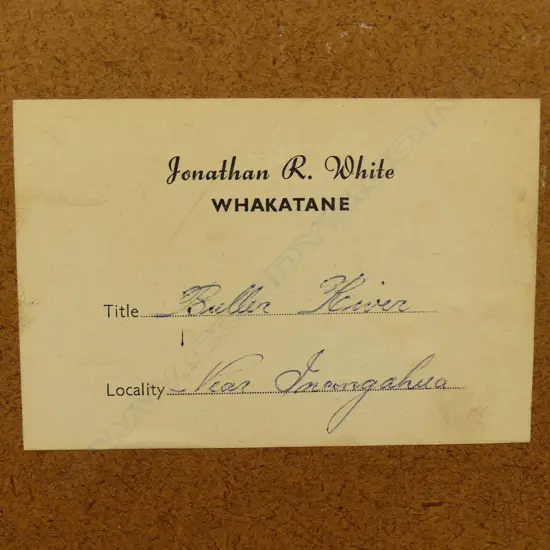 Jonathan R. White
WHAKATANE
Title Buller River
Locality Near Inangahua